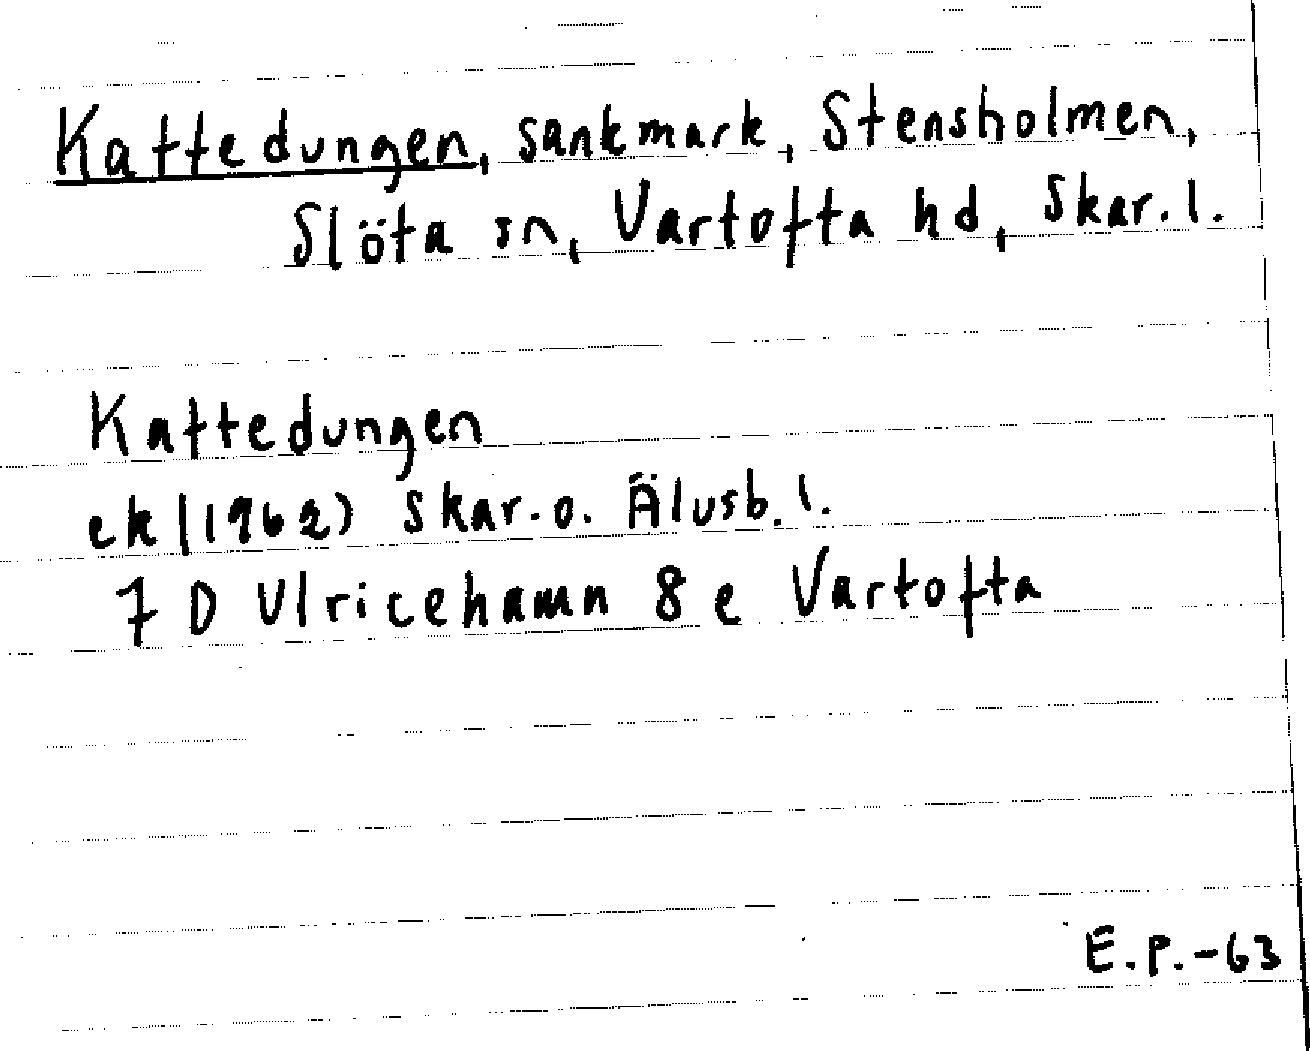 Kattedungen, sankmark, Stensholmen,
Slöta sn, Vartofta hd, Skar. l.
Kattedungen
ek (1962) Skar. o. Älvsb. l.
7 D Ulricehamn 8 e Vartofta
E.P.-63